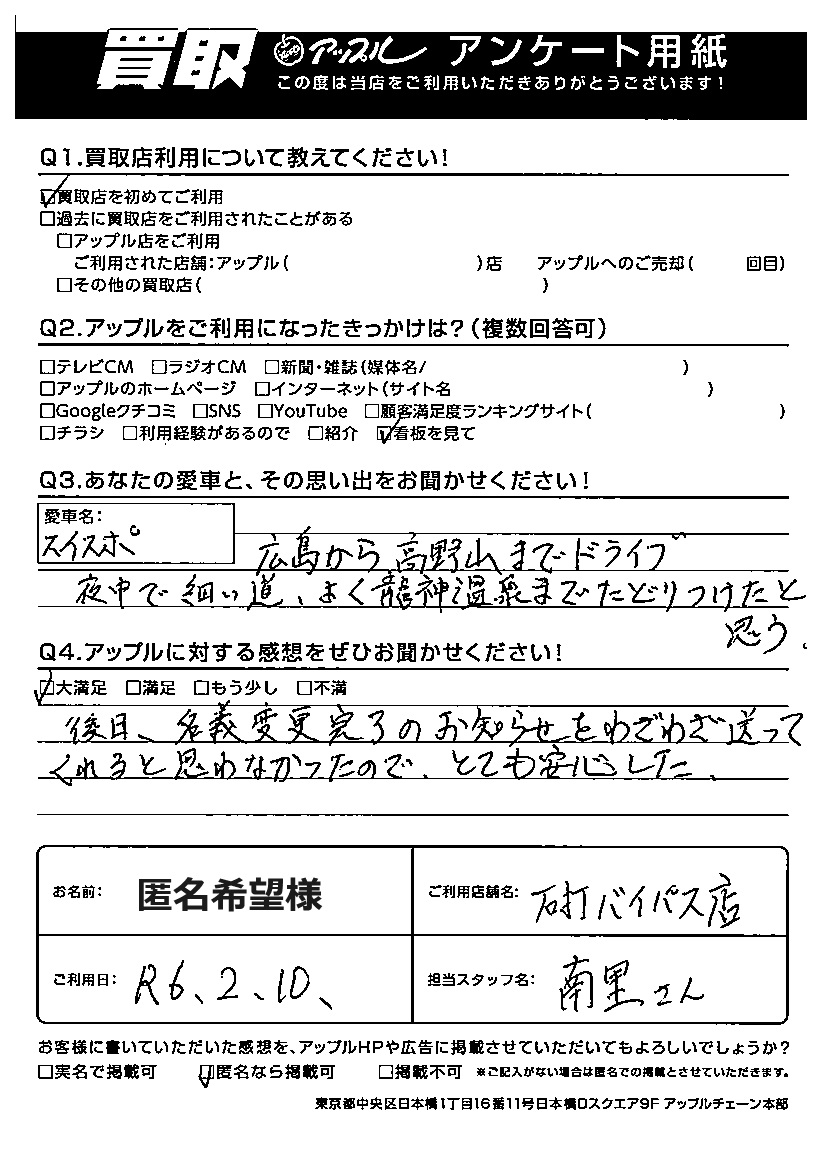 買取 アップル アンケート用紙
この度は当店をご利用いただきありがとうございます!
Q1.買取店利用について教えてください!
☑買取店を初めてご利用
□過去に買取店をご利用されたことがある
□アップル店をご利用
ご利用された店舗:アップル( )店 アップルへのご売却( 回目)
□その他の買取店( )
Q2.アップルをご利用になったきっかけは?(複数回答可)
□テレビCM □ラジオCM □新聞・雑誌(媒体名/ )
□アップルのホームページ □インターネット(サイト名 )
□Googleクチコミ □SNS □YouTube □顧客満足度ランキングサイト( )
□チラシ □利用経験があるので □紹介 ☑看板を見て
Q3.あなたの愛車と、その思い出をお聞かせください!
愛車名:
スイスポ
広島から、高野山までドライブ
夜中で細い道、よく龍神温泉までたどりつけたと
思う。
Q4.アップルに対する感想をぜひお聞かせください!
☑大満足 □満足 □もう少し □不満
後日、名義変更完了のお知らせをわざわざ送って
くれると思わなかったので、とても安心した。
お名前: 匿名希望様
ご利用店舗名: 石打バイパス店
ご利用日: R6、2、10、
担当スタッフ名: 南里さん
お客様に書いていただいた感想を、アップルHPや広告に掲載させていただいてもよろしいでしょうか?
□実名で掲載可 ☑匿名なら掲載可 □掲載不可 ※ご記入がない場合は匿名での掲載とさせていただきます。
東京都中央区日本橋1丁目16番11号日本橋Dスクエア9F アップルチェーン本部